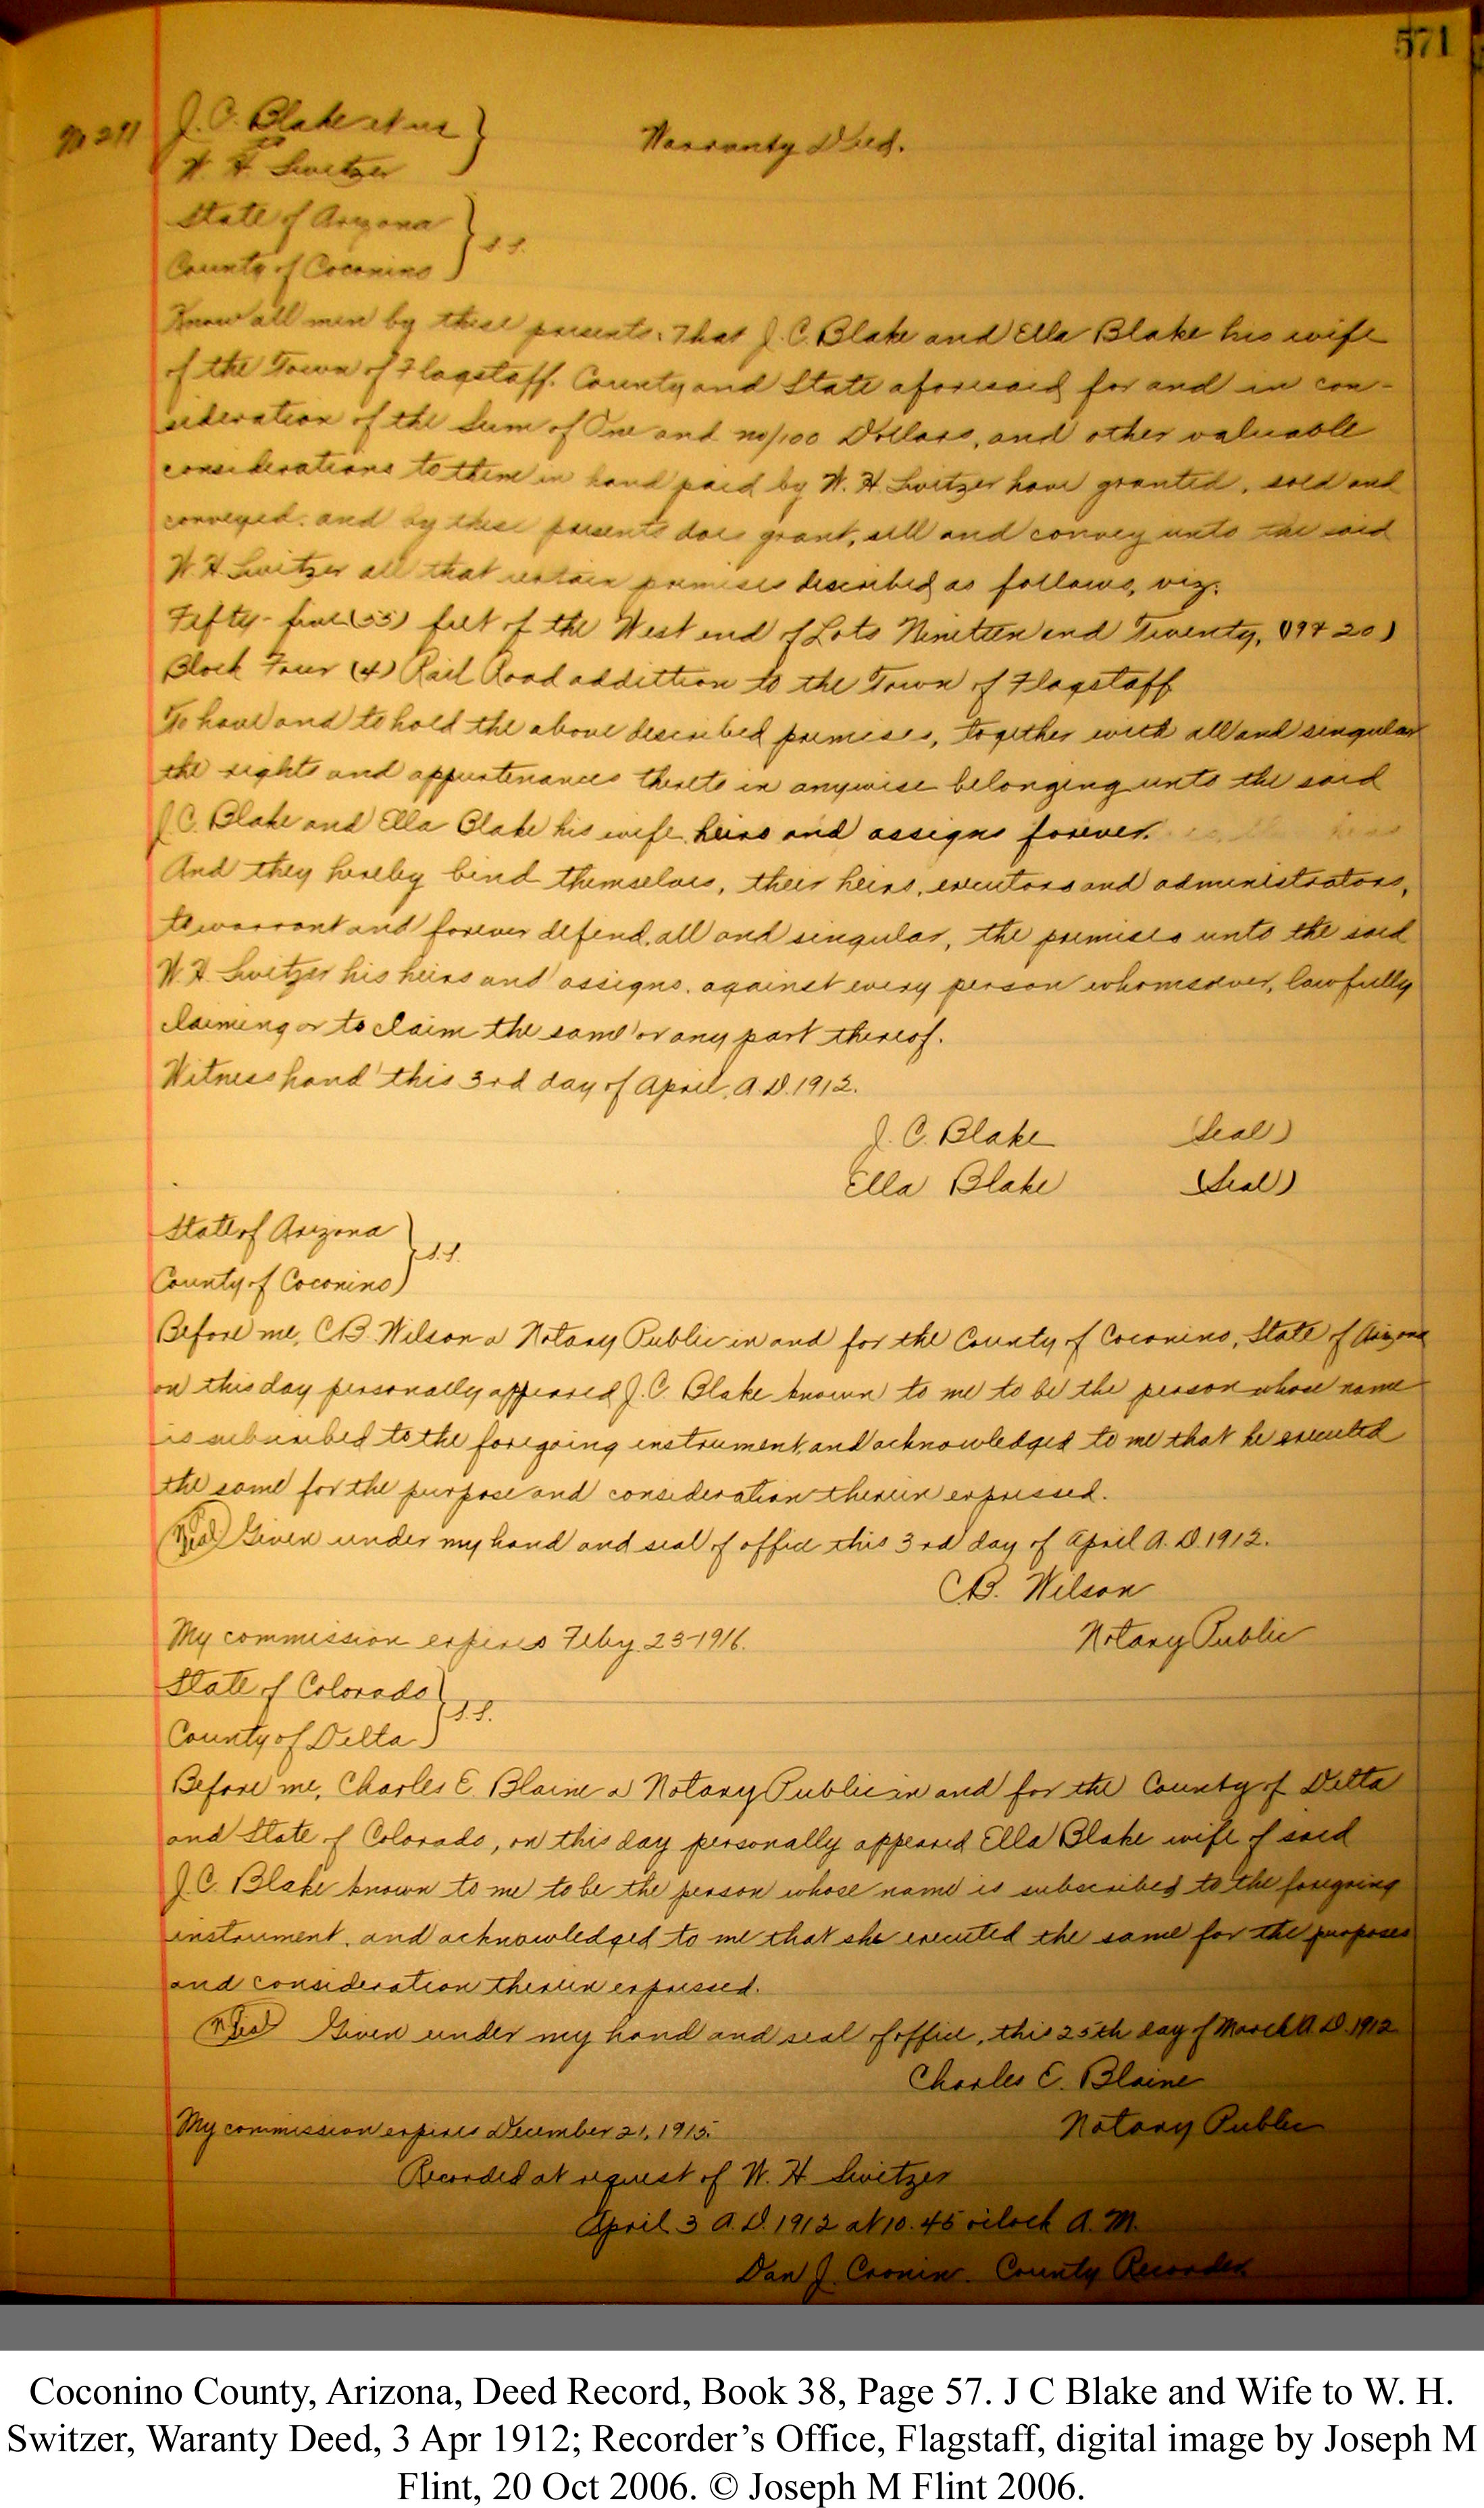 571
No 211 J. C. Blake et ux
to
W. H. Switzer
Warranty Deed.
State of Arizona
County of Coconino } S.S.
Know all men by these presents: That J. C. Blake and Ella Blake his wife
of the Town of Flagstaff. County and State aforesaid, for and in con-
sideration of the Sum of One and no/100 Dollars, and other valuable
considerations to them in hand paid by W. H. Switzer have granted, sold and
conveyed. and by these presents does grant, sell and convey unto the said
W H Switzer all that certain premises described as follows, viz:
Fifty-five (55) feet of the West end of Lots Nineteen and Twenty, (19 & 20)
Block Four (4) Rail Road addittion to the Town of Flagstaff
To have and to hold the above described premises, together with all and singular
the rights and appurtenances thereto in anywise belonging unto the said
J. C. Blake and Ella Blake his wife heirs and assigns forever.
And they hereby bind themselves, their heirs, executors and administrators,
to warrant and forever defend, all and singular, the premises unto the said
W. H. Switzer his heirs and assigns. against every person whomsoever, lawfully
claiming or to claim the same or any part thereof.
Witness hand this 3rd day of April, A.D. 1912.
J. C. Blake (Seal)
Ella Blake (Seal)
State of Arizona
County of Coconino } S.S.
Before me, C B. Wilson a Notary Public in and for the County of Coconino, State of Arizona
on this day personally appeared J. C. Blake known to me to be the person whose name
is subscribed to the foregoing instrument, and acknowledged to me that he executed
the same for the purpose and consideration therein expressed.
(N. Seal) Given under my hand and seal of office this 3rd day of April A. D. 1912.
C.B. Wilson
My commission expires Feby 23-1916. Notary Public
State of Colorado
County of Delta } S.S.
Before me, Charles E. Blaine a Notary Public in and for the County of Delta
and State of Colorado, on this day personally appeared Ella Blake wife of said
J. C. Blake known to me to be the person whose name is subscribed to the foregoing
instrument, and acknowledged to me that she executed the same for the purposes
and consideration therein expressed.
(N. Seal) Given under my hand and seal of office, this 25th day of March A. D. 1912
Charles E. Blaine
My commission expires December 21, 1915. Notary Public
Recorded at request of W. H. Switzer
April 3 A.D. 1912 at 10.45 oclock A. M.
Dan J. Cronin. County Recorder
Coconino County, Arizona, Deed Record, Book 38, Page 57. J C Blake and Wife to W. H.
Switzer, Waranty Deed, 3 Apr 1912; Recorder’s Office, Flagstaff, digital image by Joseph M
Flint, 20 Oct 2006. © Joseph M Flint 2006.